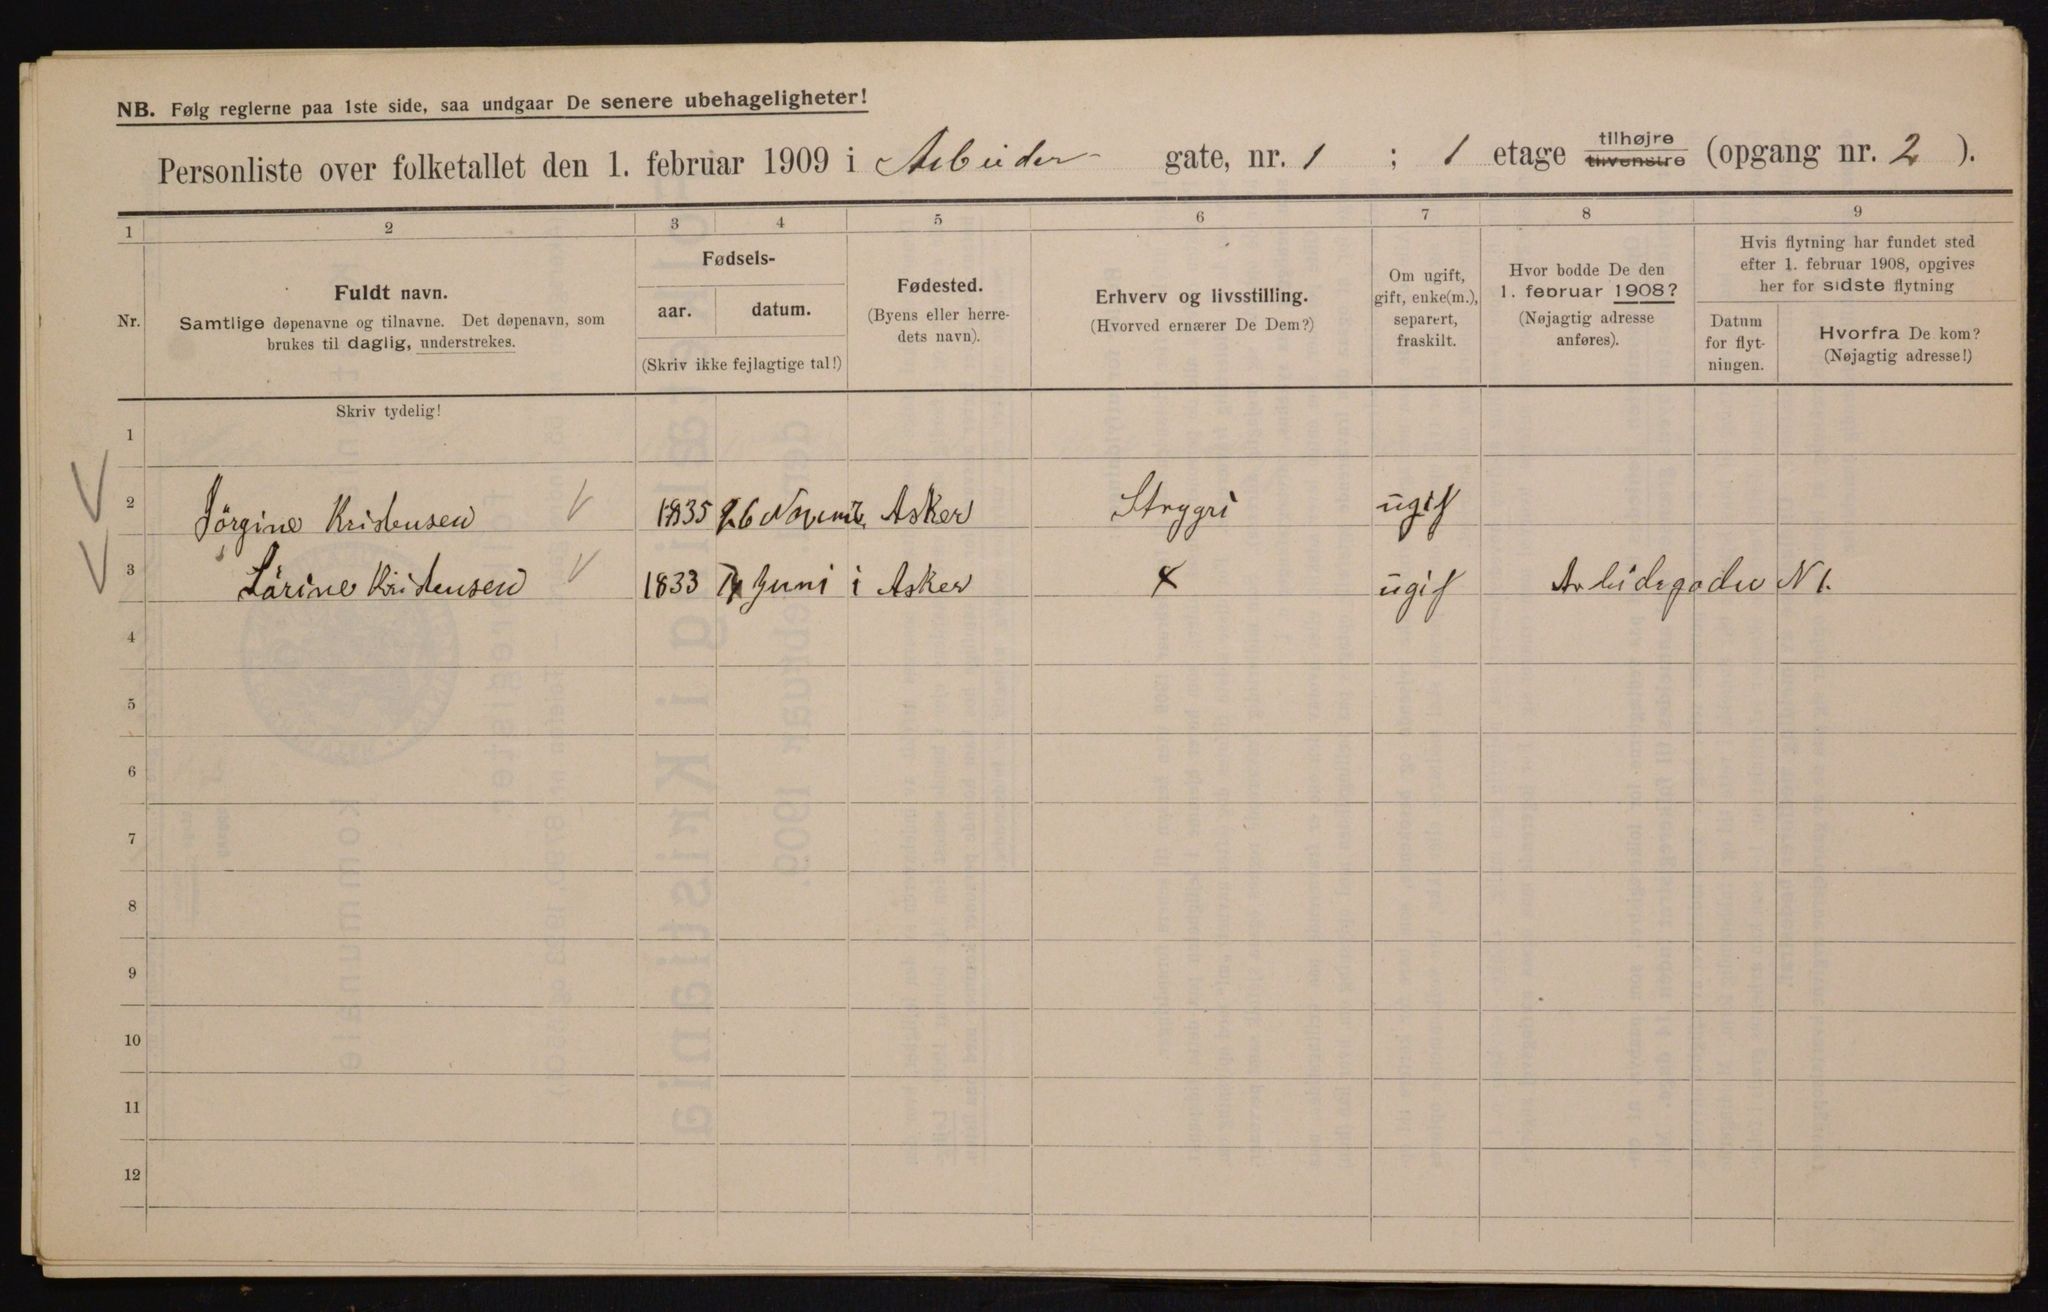 NB. Følg reglerne paa 1ste side, saa undgaar De senere ubehageligheter!
Personliste over folketallet den 1. februar 1909 i Arbeider- gate, nr. 1 ; 1 etage tilhøjre tilvenstre (opgang nr. 2 ).
1 2 3 4 5 6 7 8 9
Nr.
Fuldt navn.
Samtlige døpenavne og tilnavne. Det døpenavn, som
brukes til daglig, understrekes.
Fødsels-
aar. datum.
(Skriv ikke fejlagtige tal!)
Fødested.
(Byens eller herre-
dets navn).
Erhverv og livsstilling.
(Hvorved ernærer De Dem?)
Om ugift,
gift, enke(m.),
separert,
fraskilt.
Hvor bodde De den
1. februar 1908?
(Nøjagtig adresse
anføres).
Hvis flytning har fundet sted
efter 1. februar 1908, opgives
her for sidste flytning
Datum
for flyt-
ningen.
Hvorfra De kom?
(Nøjagtig adresse!)
Skriv tydelig!
1
2 Jörgine Kristensen 1835 26 Novemb. Asker Strygri ugif
3 Sörine Kristensen 1833 Juni i Asker ugif Arbidergaden N 1.
4
5
6
7
8
9
10
11
12